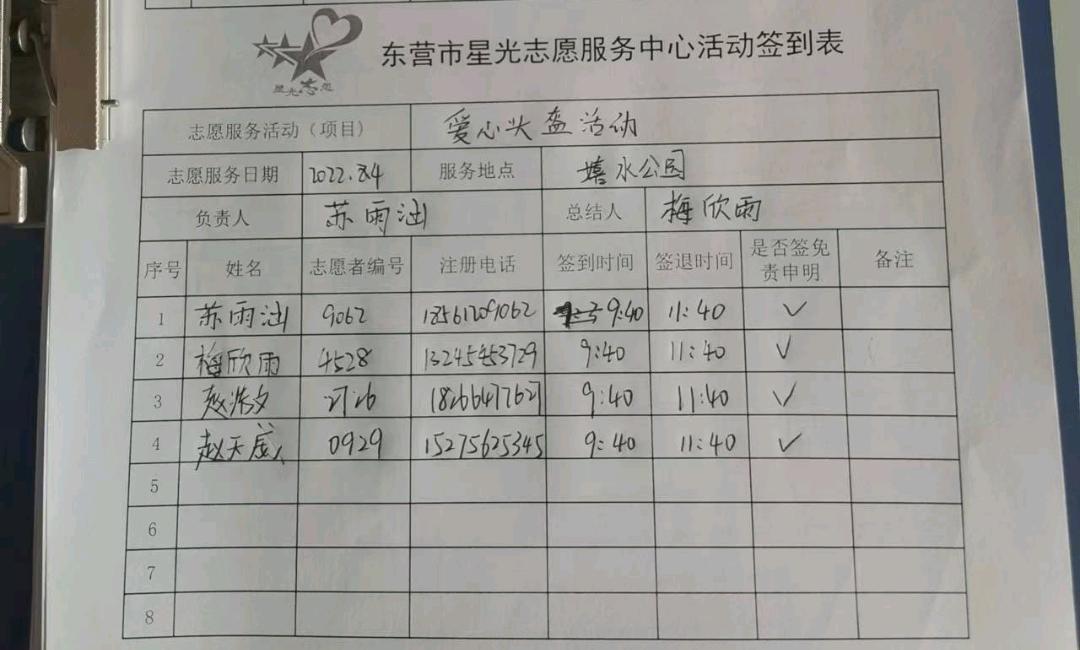 星光志愿
东营市星光志愿服务中心活动签到表
志愿服务活动（项目） 爱心头盔活动
志愿服务日期 2022.8.4 服务地点 嬉水公园
负责人 苏雨涵 总结人 梅欣雨
序号 姓名 志愿者编号 注册电话 签到时间 签退时间 是否签免责申明 备注
1 苏雨涵 9062 18561209062 9:40 11:40 ✓
2 梅欣雨 4528 13245453729 9:40 11:40 ✓
3 2726 18266477627 9:40 11:40 ✓
4 赵天 0929 15275625345 9:40 11:40 ✓
5
6
7
8